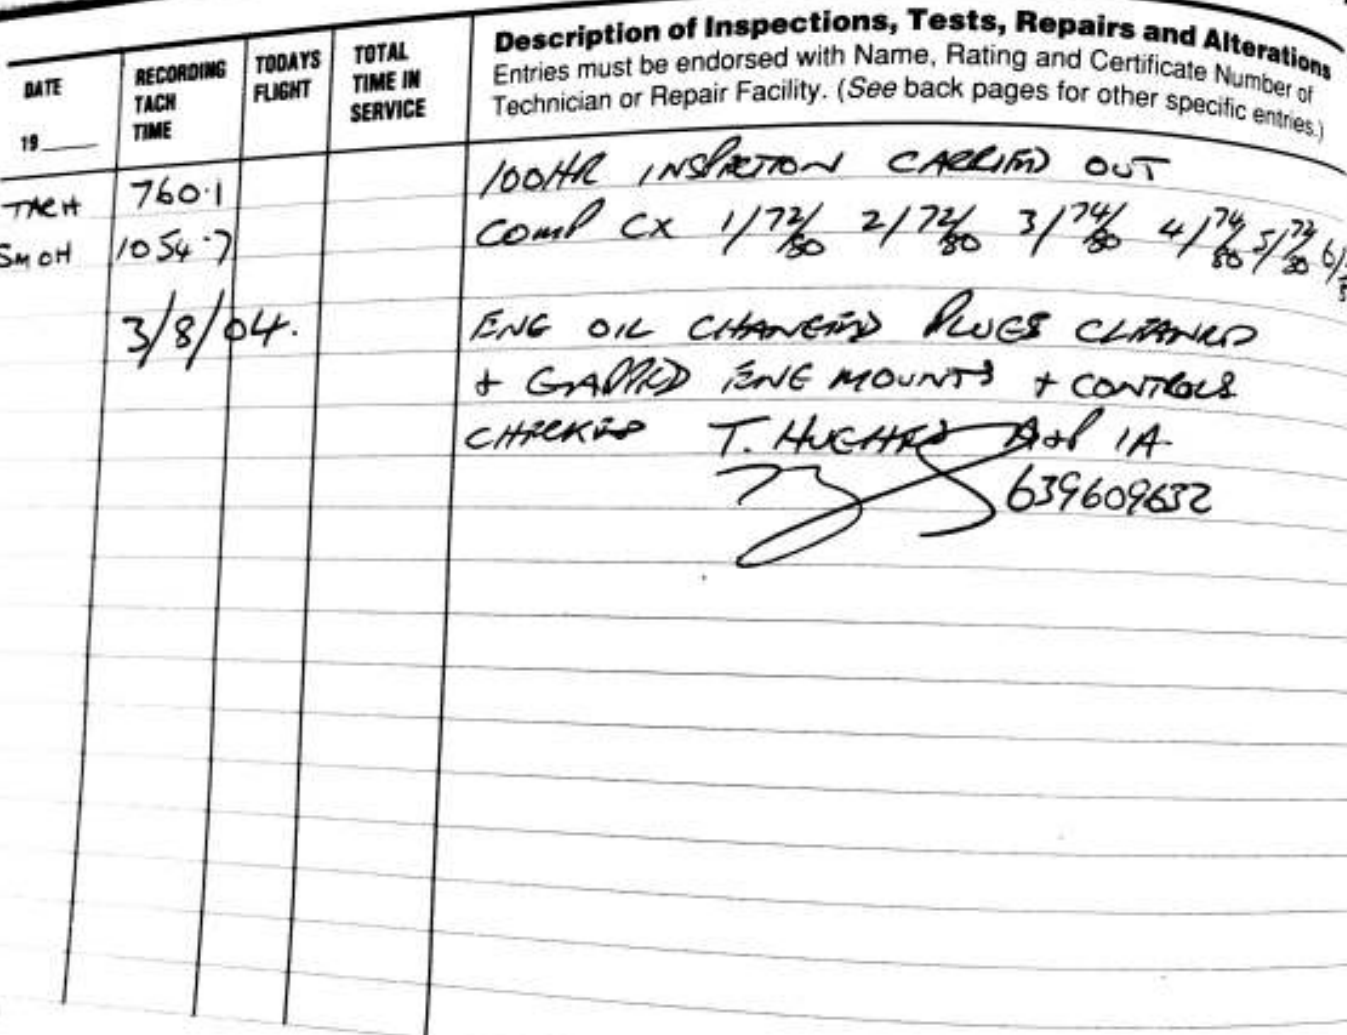 DATE
19____
RECORDING
TACH
TIME
TODAYS
FLIGHT
TOTAL
TIME IN
SERVICE
Description of Inspections, Tests, Repairs and Alterations
Entries must be endorsed with Name, Rating and Certificate Number of
Technician or Repair Facility. (See back pages for other specific entries.)
TACH 760.1 100HR INSPECTION CARRIED OUT
SMOH 1054.7 COMP CX 1/72/80 2/72/80 3/74/80 4/74/80 5/72/80 6/
3/8/04. ENG OIL CHANGED PLUGS CLEANED
+ GAPPED ENG MOUNTS + CONTROLS
CHECKED T. HUGHES A+P IA
639609632